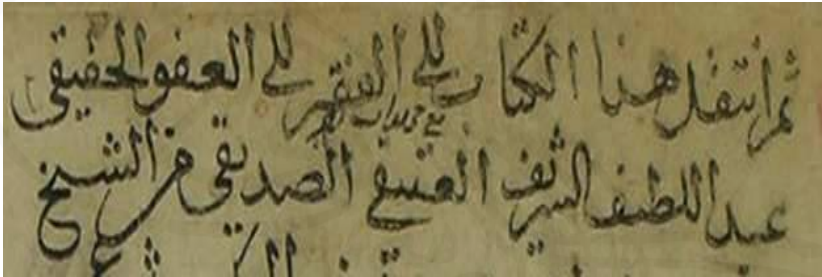 ثم انتقل هذا الكتاب إلى الفقير إلى العفو الحقيقي
عبد اللطيف الشريف العتيقي الصديقي من الشيخ